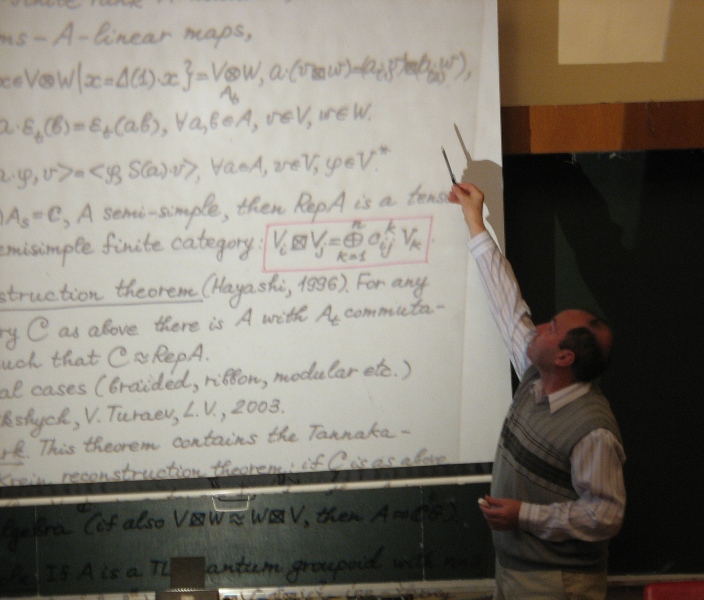 finite rank
ms-A-linear maps,
x∈V⊗W|x=Δ(1)·x}=V⊗W, a·(v⊠w)=
A_t
a·ε_t(b)=ε_t(ab), ∀a,b∈A, v∈V, w∈W.
a·φ, v>=<φ, S(a)·v>, ∀a∈A, v∈V, φ∈V*
)A_s=C, A semi-simple, then RepA is a tens
emisimple finite category: V_i⊠V_j=⊕_{k=1}^{n} c_{ij}^{k} V_k
struction theorem (Hayashi, 1996). For any
ry C as above there is A with A_t commuta-
uch that C≈RepA.
al cases (braided, ribbon, modular etc.)
kshych, V. Turaev, L.V., 2003.
rk. This theorem contains the Tannaka-
Krein reconstruction theorem: if C is as above
lgebra (if also V⊠W≈W⊠V, then A=
If A is a antum groupoid with